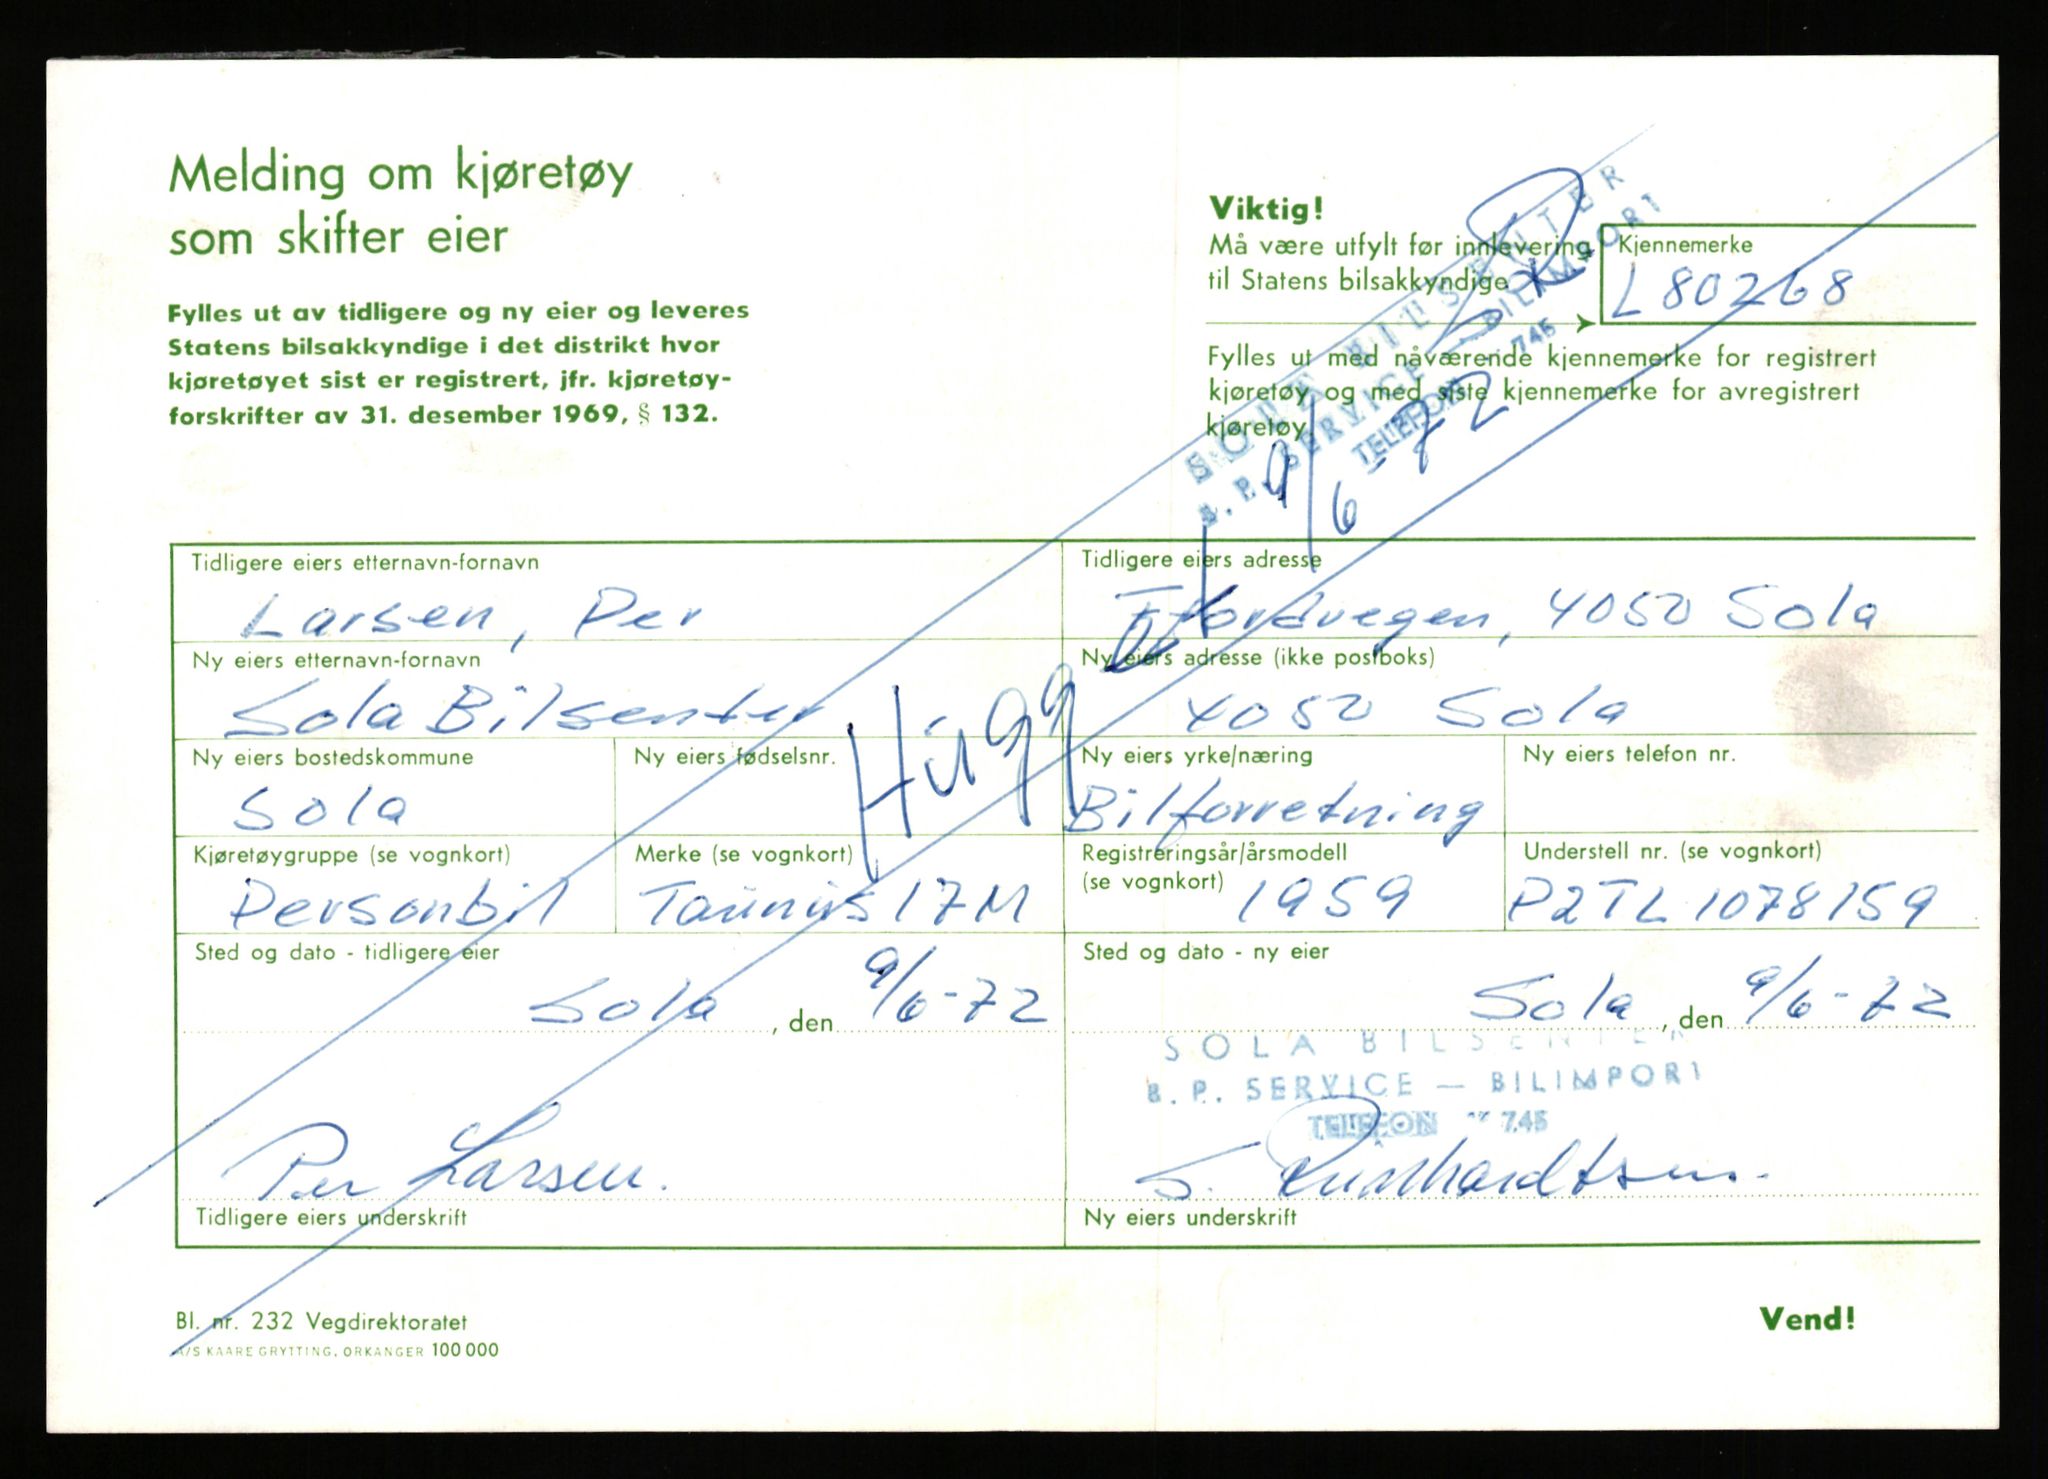 Melding om kjøretøy
som skifter eier
Fylles ut av tidligere og ny eier og leveres
Statens bilsakkyndige i det distrikt hvor
kjøretøyet sist er registrert, jfr. kjøretøy-
forskrifter av 31. desember 1969, § 132.
Viktig!
Må være utfylt før innlevering
til Statens bilsakkyndige
Kjennemerke
L 80268
Fylles ut med nåværende kjennemerke for registrert
kjøretøy og med siste kjennemerke for avregistrert
kjøretøy
SOLA BILSENTER
B. P. SERVICE — BILIMPORT
TELEFON 745
9/6-72
Hugget
Tidligere eiers etternavn-fornavn
Larsen, Per
Tidligere eiers adresse
Fjordvegen, 4050 Sola
Ny eiers etternavn-fornavn
Sola Bilsenter
Ny eiers adresse (ikke postboks)
4050 Sola
Ny eiers bostedskommune
Sola
Ny eiers fødselsnr.
Ny eiers yrke/næring
Bilforretning
Ny eiers telefon nr.
Kjøretøygruppe (se vognkort)
Personbil
Merke (se vognkort)
Taunus 17M
Registreringsår/årsmodell
(se vognkort)
1959
Understell nr. (se vognkort)
P2TL 1078159
Sted og dato - tidligere eier
Sola, den 9/6-72
Sted og dato - ny eier
Sola, den 9/6-72
SOLA BILSENTER
B. P. SERVICE — BILIMPORT
TELEFON 745
Per Larsen.
Tidligere eiers underskrift
S.
Ny eiers underskrift
Bl. nr. 232 Vegdirektoratet
A/S KAARE GRYTTING, ORKANGER 100 000
Vend!